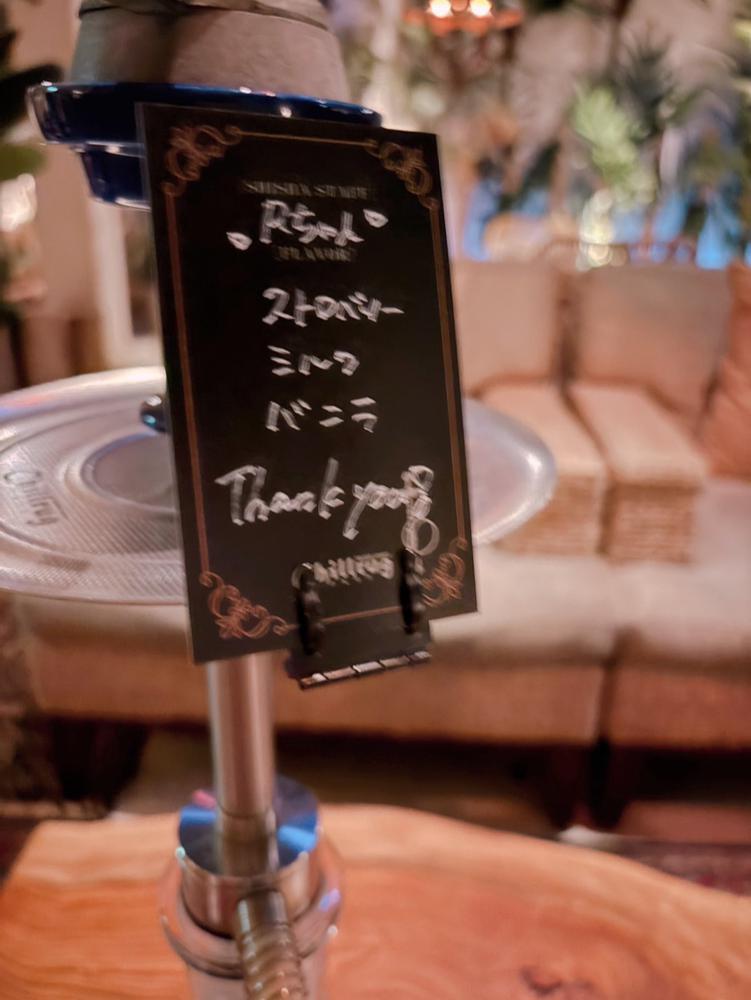 SHISHA STAFF
Rちゃん
FLAVOR
ストロベリー
ミルク
バニラ
Thank you
Chilling
Chilling